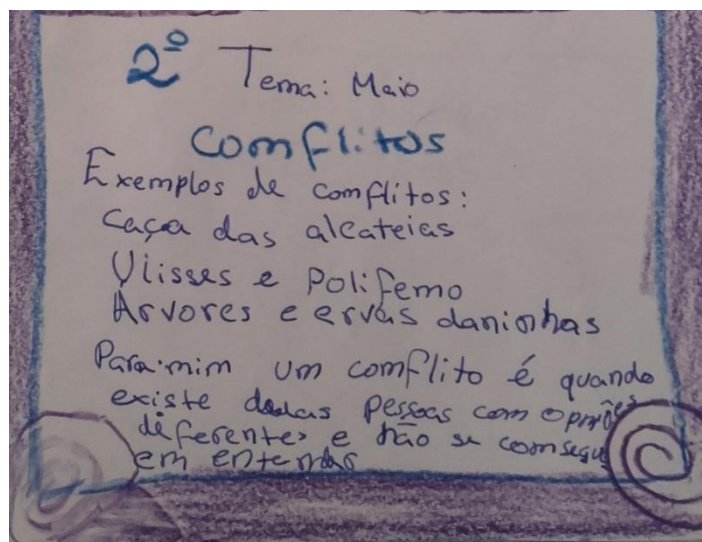 2º Tema: Maio
Comflitos
Exemplos de comflitos:
Caça das alcateias
Ulisses e Polifemo
Árvores e ervas daninhas
Para mim um comflito é quando
existe pessoas com opniões
diferentes e não se comsegu
em entender